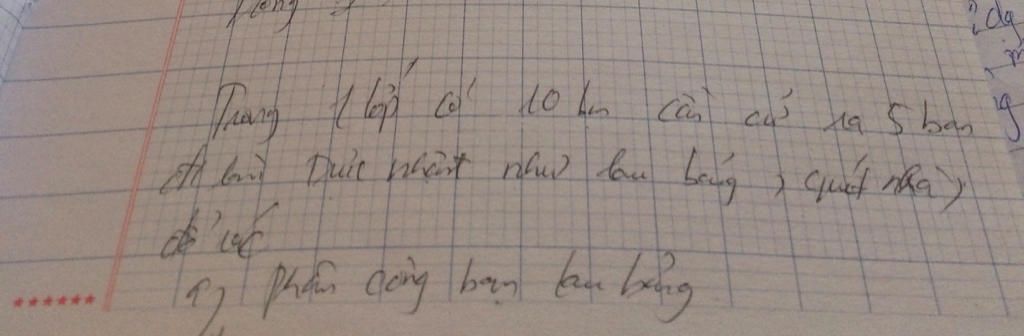 Trong 1 lớp có 10 bn cần cử ra 5 bạn
đi trực nhật như lau bảng, quét nhà,
đổ rác
a, phân công bạn lau bảng